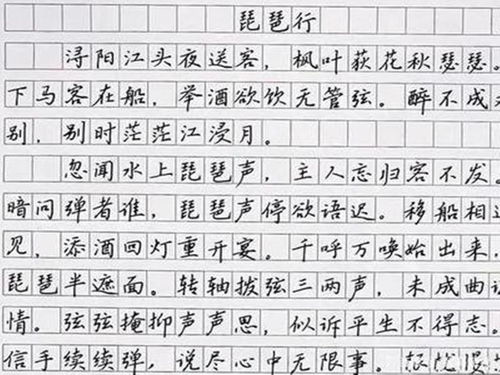 琵琶行
浔阳江头夜送客，枫叶荻花秋瑟瑟。
下马客在船，举酒欲饮无管弦。醉不成
别，别时茫茫江浸月。
忽闻水上琵琶声，主人忘归客不发。
暗问弹者谁，琵琶声停欲语迟。移船相
见，添酒回灯重开宴。千呼万唤始出来，
琵琶半遮面。转轴拨弦三两声，未成曲
情。弦弦掩抑声声思，似诉平生不得志。
信手续续弹，说尽心中无限事。